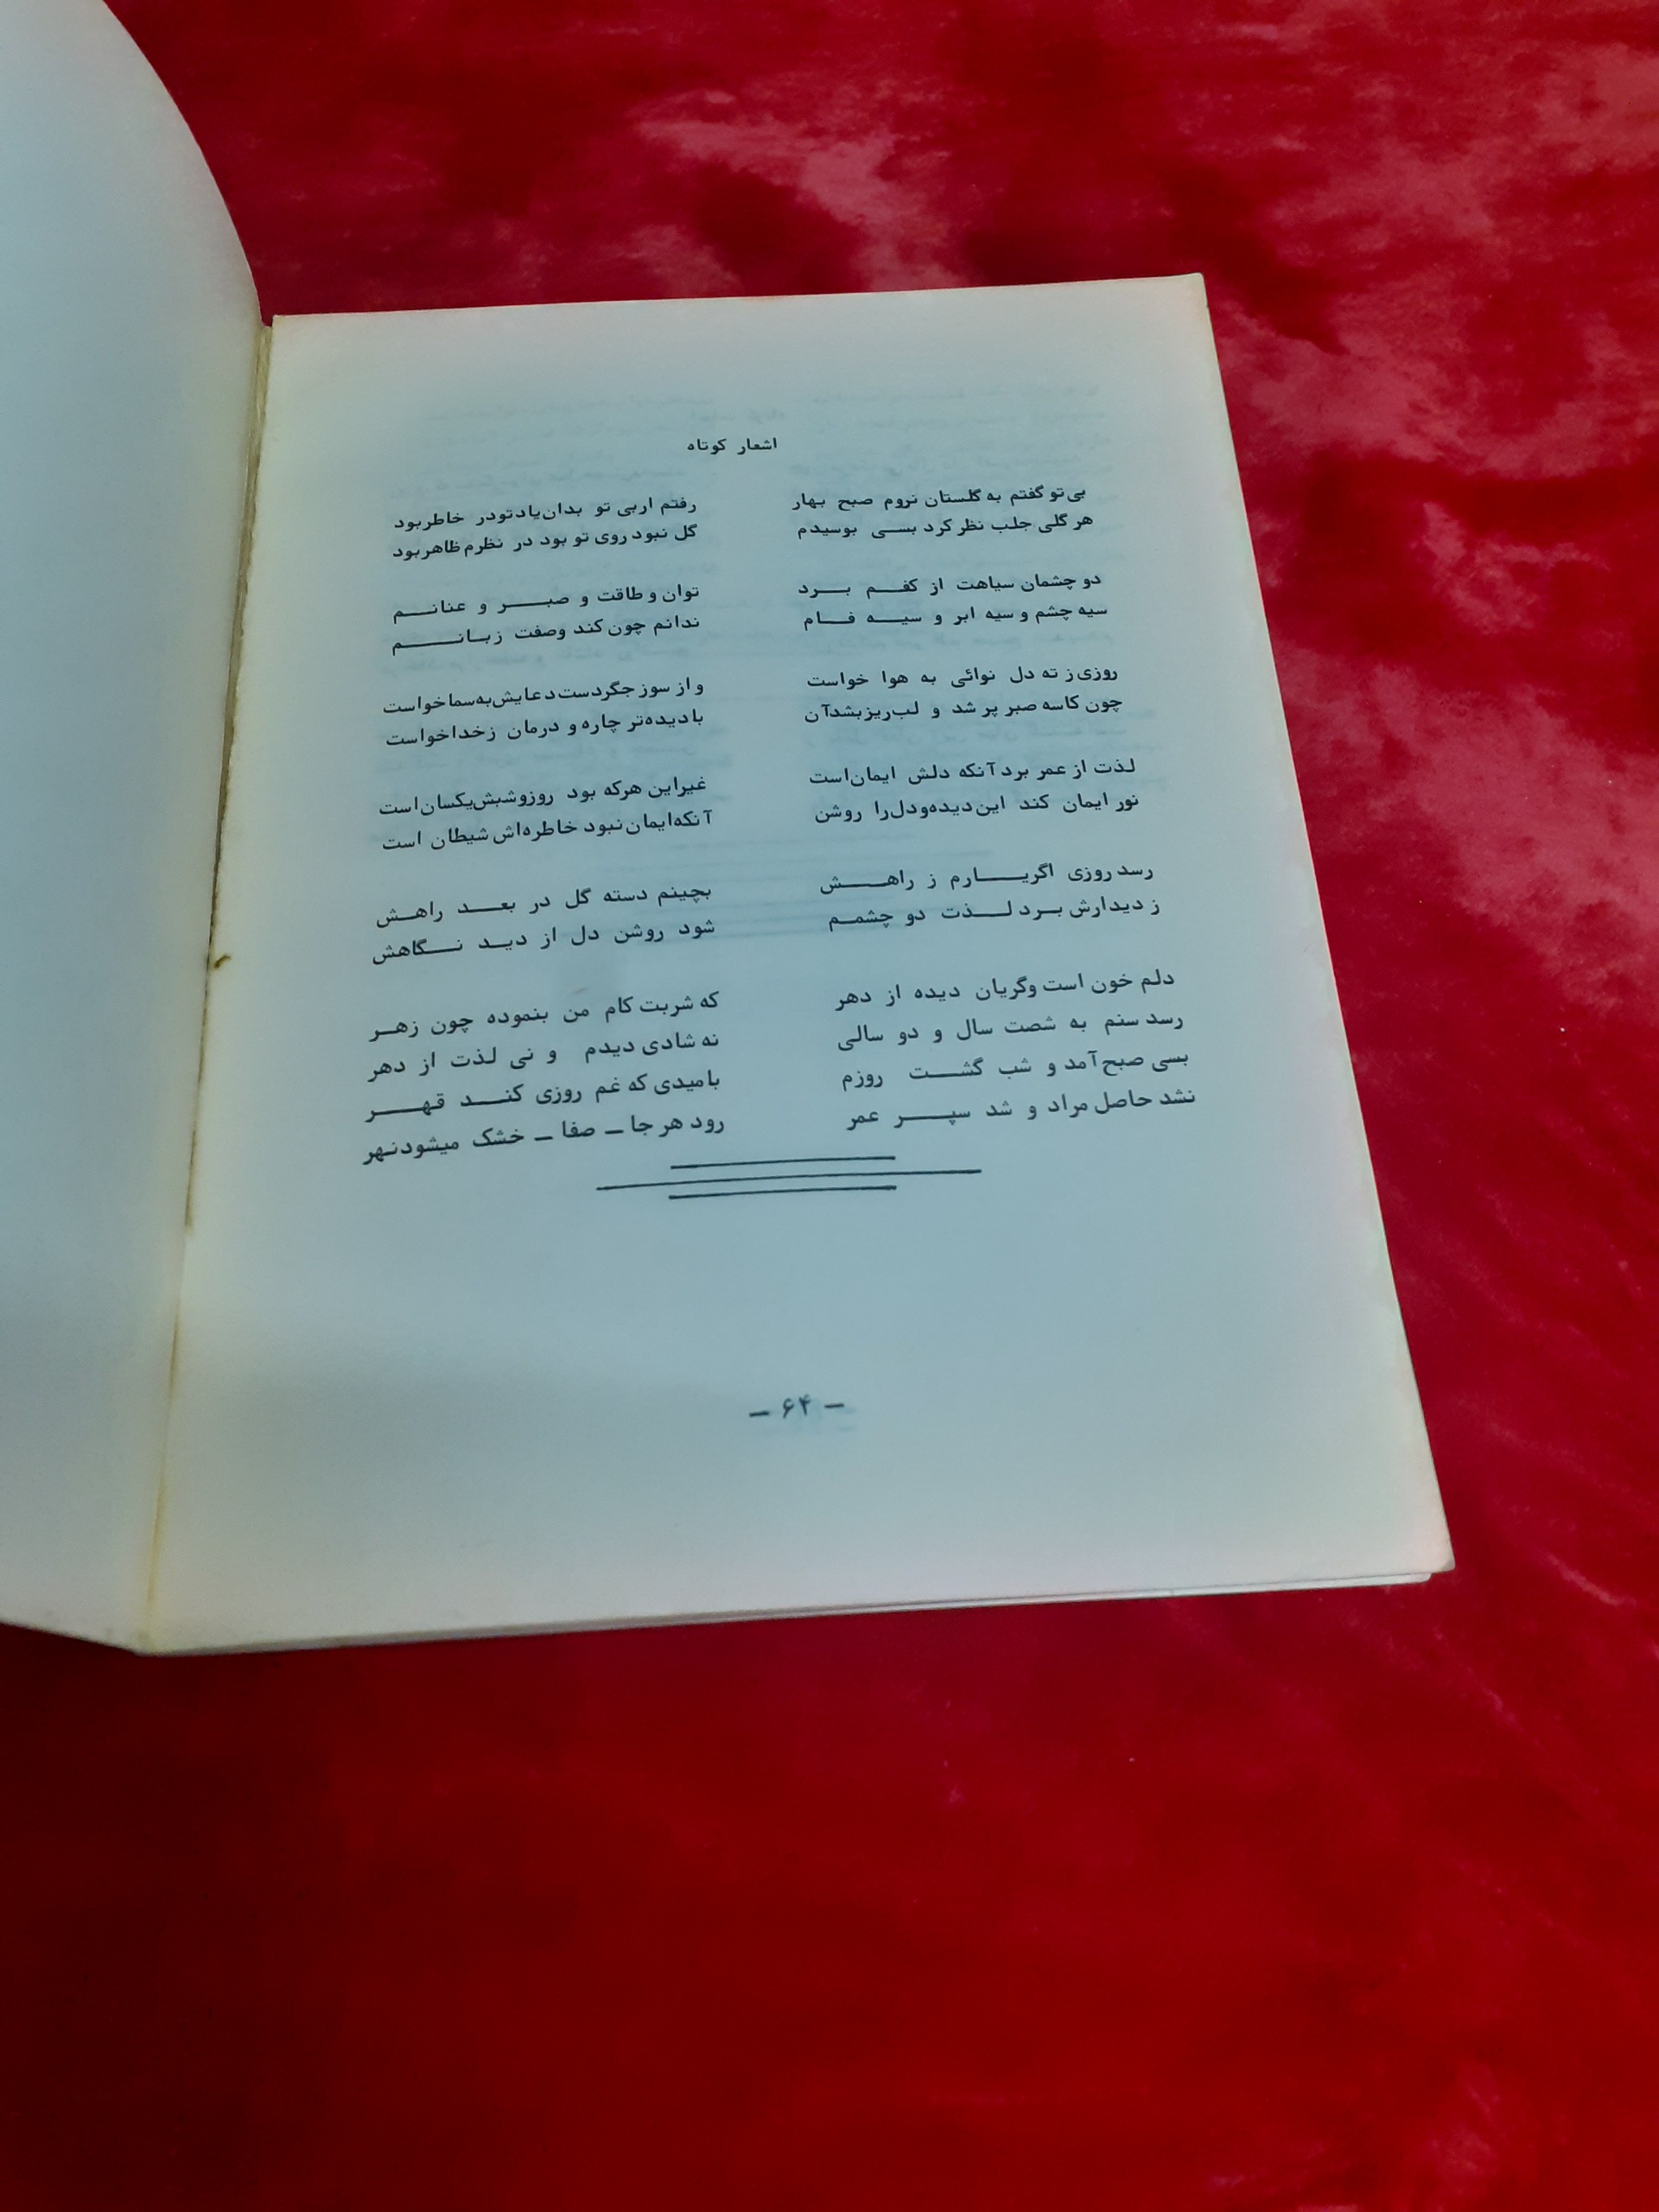 اشعار کوتاه
بی تو گفتم به گلستان نروم صبح بهار رفتم اربی تو بدان یاد تو در خاطر بود
هر گلی جلب نظر کرد بسی بوسیدم گل نبود روی تو بود در نظرم ظاهر بود
دو چشمان سیاهت از کفم برد توان و طاقت و صبر و عنانم
سیه چشم و سیه ابر و سیه فام ندانم چون کند وصفت زبانم
روزی ز ته دل نوائی به هوا خواست و از سوز جگر دست دعایش به سما خواست
چون کاسه صبر پر شد و لب‌ریز بشد آن با دیده‌تر چاره و درمان ز خدا خواست
لذت از عمر برد آنکه دلش ایمان است غیر این هر که بود روز و شبش یکسان است
نور ایمان کند این دیده و دل را روشن آنکه ایمان نبود خاطره‌اش شیطان است
رسد روزی اگر یارم ز راهش بچینم دسته گل در بعد راهش
ز دیدارش برد لذت دو چشمم شود روشن دل از دید نگاهش
دلم خون است و گریان دیده از دهر که شربت کام من بنموده چون زهر
رسد سنم به شصت سال و دو سالی نه شادی دیدم و نی لذت از دهر
بسی صبح آمد و شب گشت روزم بامیدی که غم روزی کند قهر
نشد حاصل مراد و شد سپر عمر رود هر جا ــ صفا ــ خشک میشود نهر
ــ ۶۴ ــ